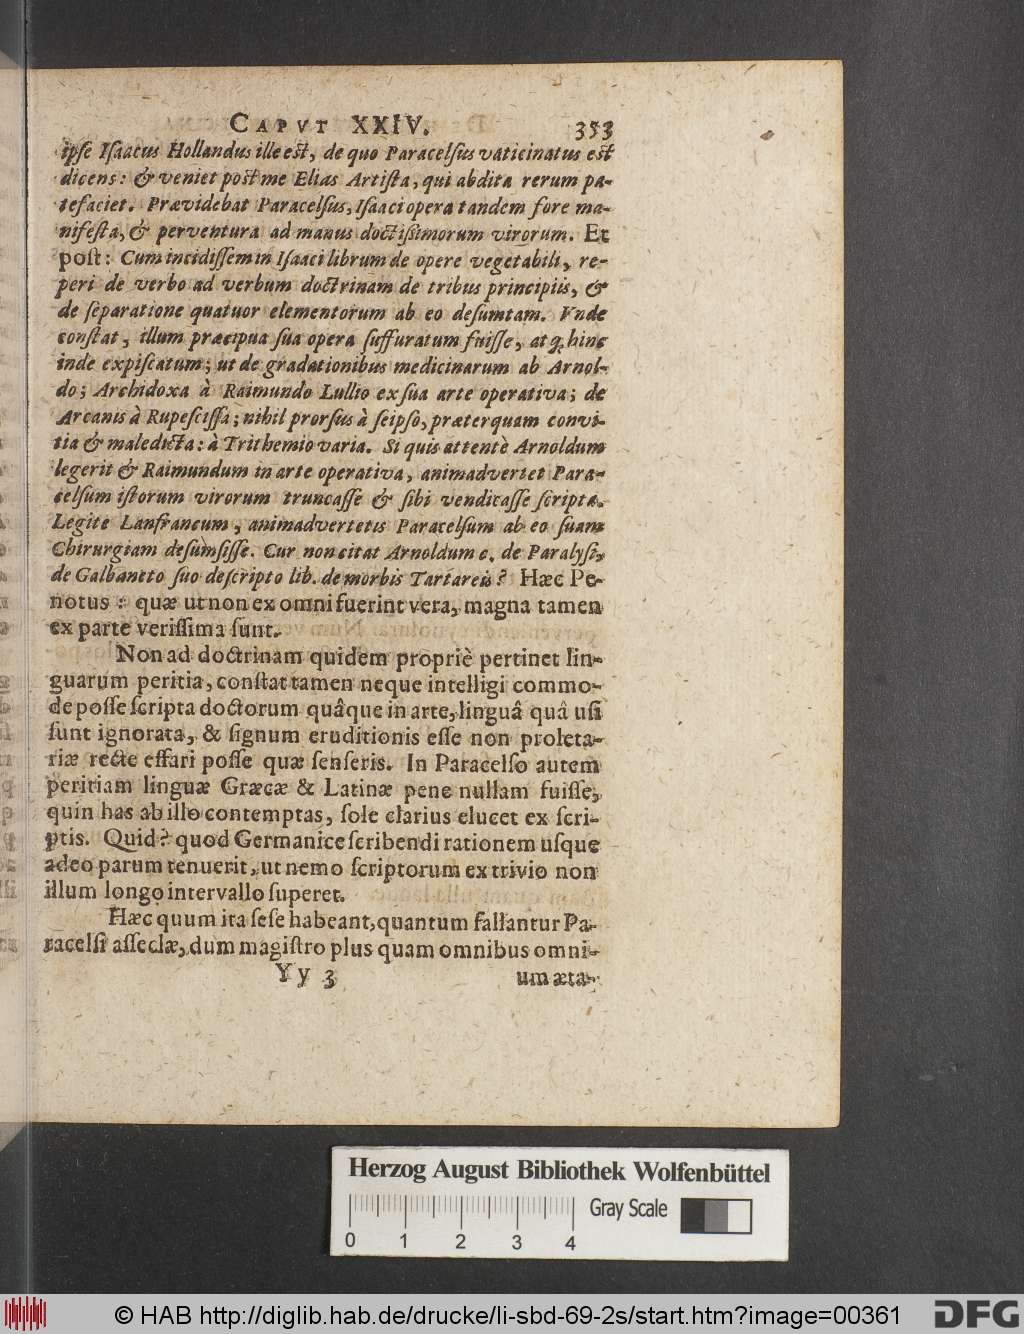 CAPVT XXIV. 353
ipſe Iſaacus Hollandus ille est, de quo Paracelſus vaticinatus est
dicens: & veniet post me Elias Artiſta, qui abdita rerum pa-
tefaciet. Prævidebat Paracelſus, Iſaaci opera tandem fore ma-
nifeſta, & perventura ad manus doctiſsimorum virorum. Et
poſt: Cum incidiſſem in Iſaaci librum de opere vegetabili, re-
peri de verbo ad verbum doctrinam de tribus principiis, &
de ſeparatione quatuor elementorum ab eo deſumtam. Vnde
conſtat, illum præcipua ſua opera ſuffuratum fuiſſe, atq; hinc
inde expiſcatum; ut de gradationibus medicinarum ab Arnol-
do; Archidoxa à Raimundo Lullio ex ſua arte operativa; de
Arcanis à Rupeſciſſa; nihil prorſus à ſeipſo, præterquam convi-
tia & maledicta: à Trithemio varia. Si quis attentè Arnoldum
legerit & Raimundum in arte operativa, animadvertet Para-
celſum iſtorum virorum truncaſſe & ſibi vendicaſſe ſcripta.
Legite Lanfrancum, animadvertetis Paracelſum ab eo ſuam
Chirurgiam deſumſiſſe. Cur non citat Arnoldum c. de Paralyſi,
de Galbanetto ſuo deſcripto lib. de morbis Tartareis? Hæc Pe-
notus: quæ ut non ex omni fuerint vera, magna tamen
ex parte veriſſima ſunt.
Non ad doctrinam quidem propriè pertinet lin-
guarum peritia, conſtat tamen neque intelligi commo-
de poſſe ſcripta doctorum quâque in arte, linguâ quâ uſi
ſunt ignorata, & ſignum eruditionis eſſe non proleta-
riæ recte effari poſſe quæ ſenſeris. In Paracelſo autem
peritiam linguæ Græcæ & Latinæ pene nullam fuiſſe,
quin has ab illo contemptas, ſole clarius elucet ex ſcri-
ptis. Quid? quod Germanice ſcribendi rationem uſque
adeo parum tenuerit, ut nemo ſcriptorum ex trivio non
illum longo intervallo ſuperet.
Hæc quum ita ſeſe habeant, quantum fallantur Pa-
racelſi aſſeclæ, dum magiſtro plus quam omnibus omni-
Yy 3 um æta-
Herzog August Bibliothek Wolfenbüttel
Gray Scale
0 1 2 3 4
© HAB http://diglib.hab.de/drucke/li-sbd-69-2s/start.htm?image=00361
DFG